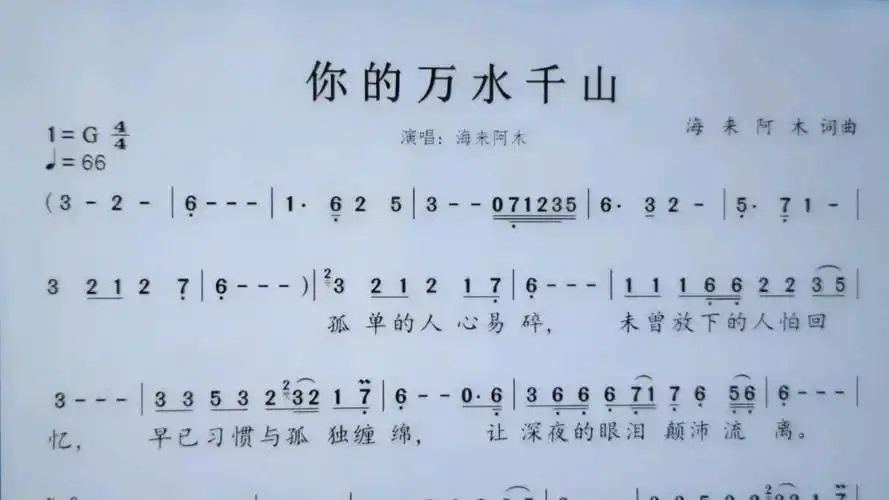 你的万水千山
1=G 4/4
演唱：海来阿木
海来阿木词曲
♩=66
(3 - 2 - | 6 - - - | 1· 6 2 5 | 3 - - 071235 | 6· 3 2 - | 5· 7 1 - |
3 2 1 2 7 | 6 - - - )| 2 3 2 1 2 1 7 | 6 - - - | 1 1 1 6 6 2 2 3 5 |
孤单的人心易碎， 未曾放下的人怕回
3 - - - | 3 3 5 3 2 2 3 2 1 7 | 6 - - 0· 6 | 3 6 6 6 7 1 7 6 5 6 | 6 - - - |
忆， 早已习惯与孤独缠绵， 让深夜的眼泪颠沛流离。